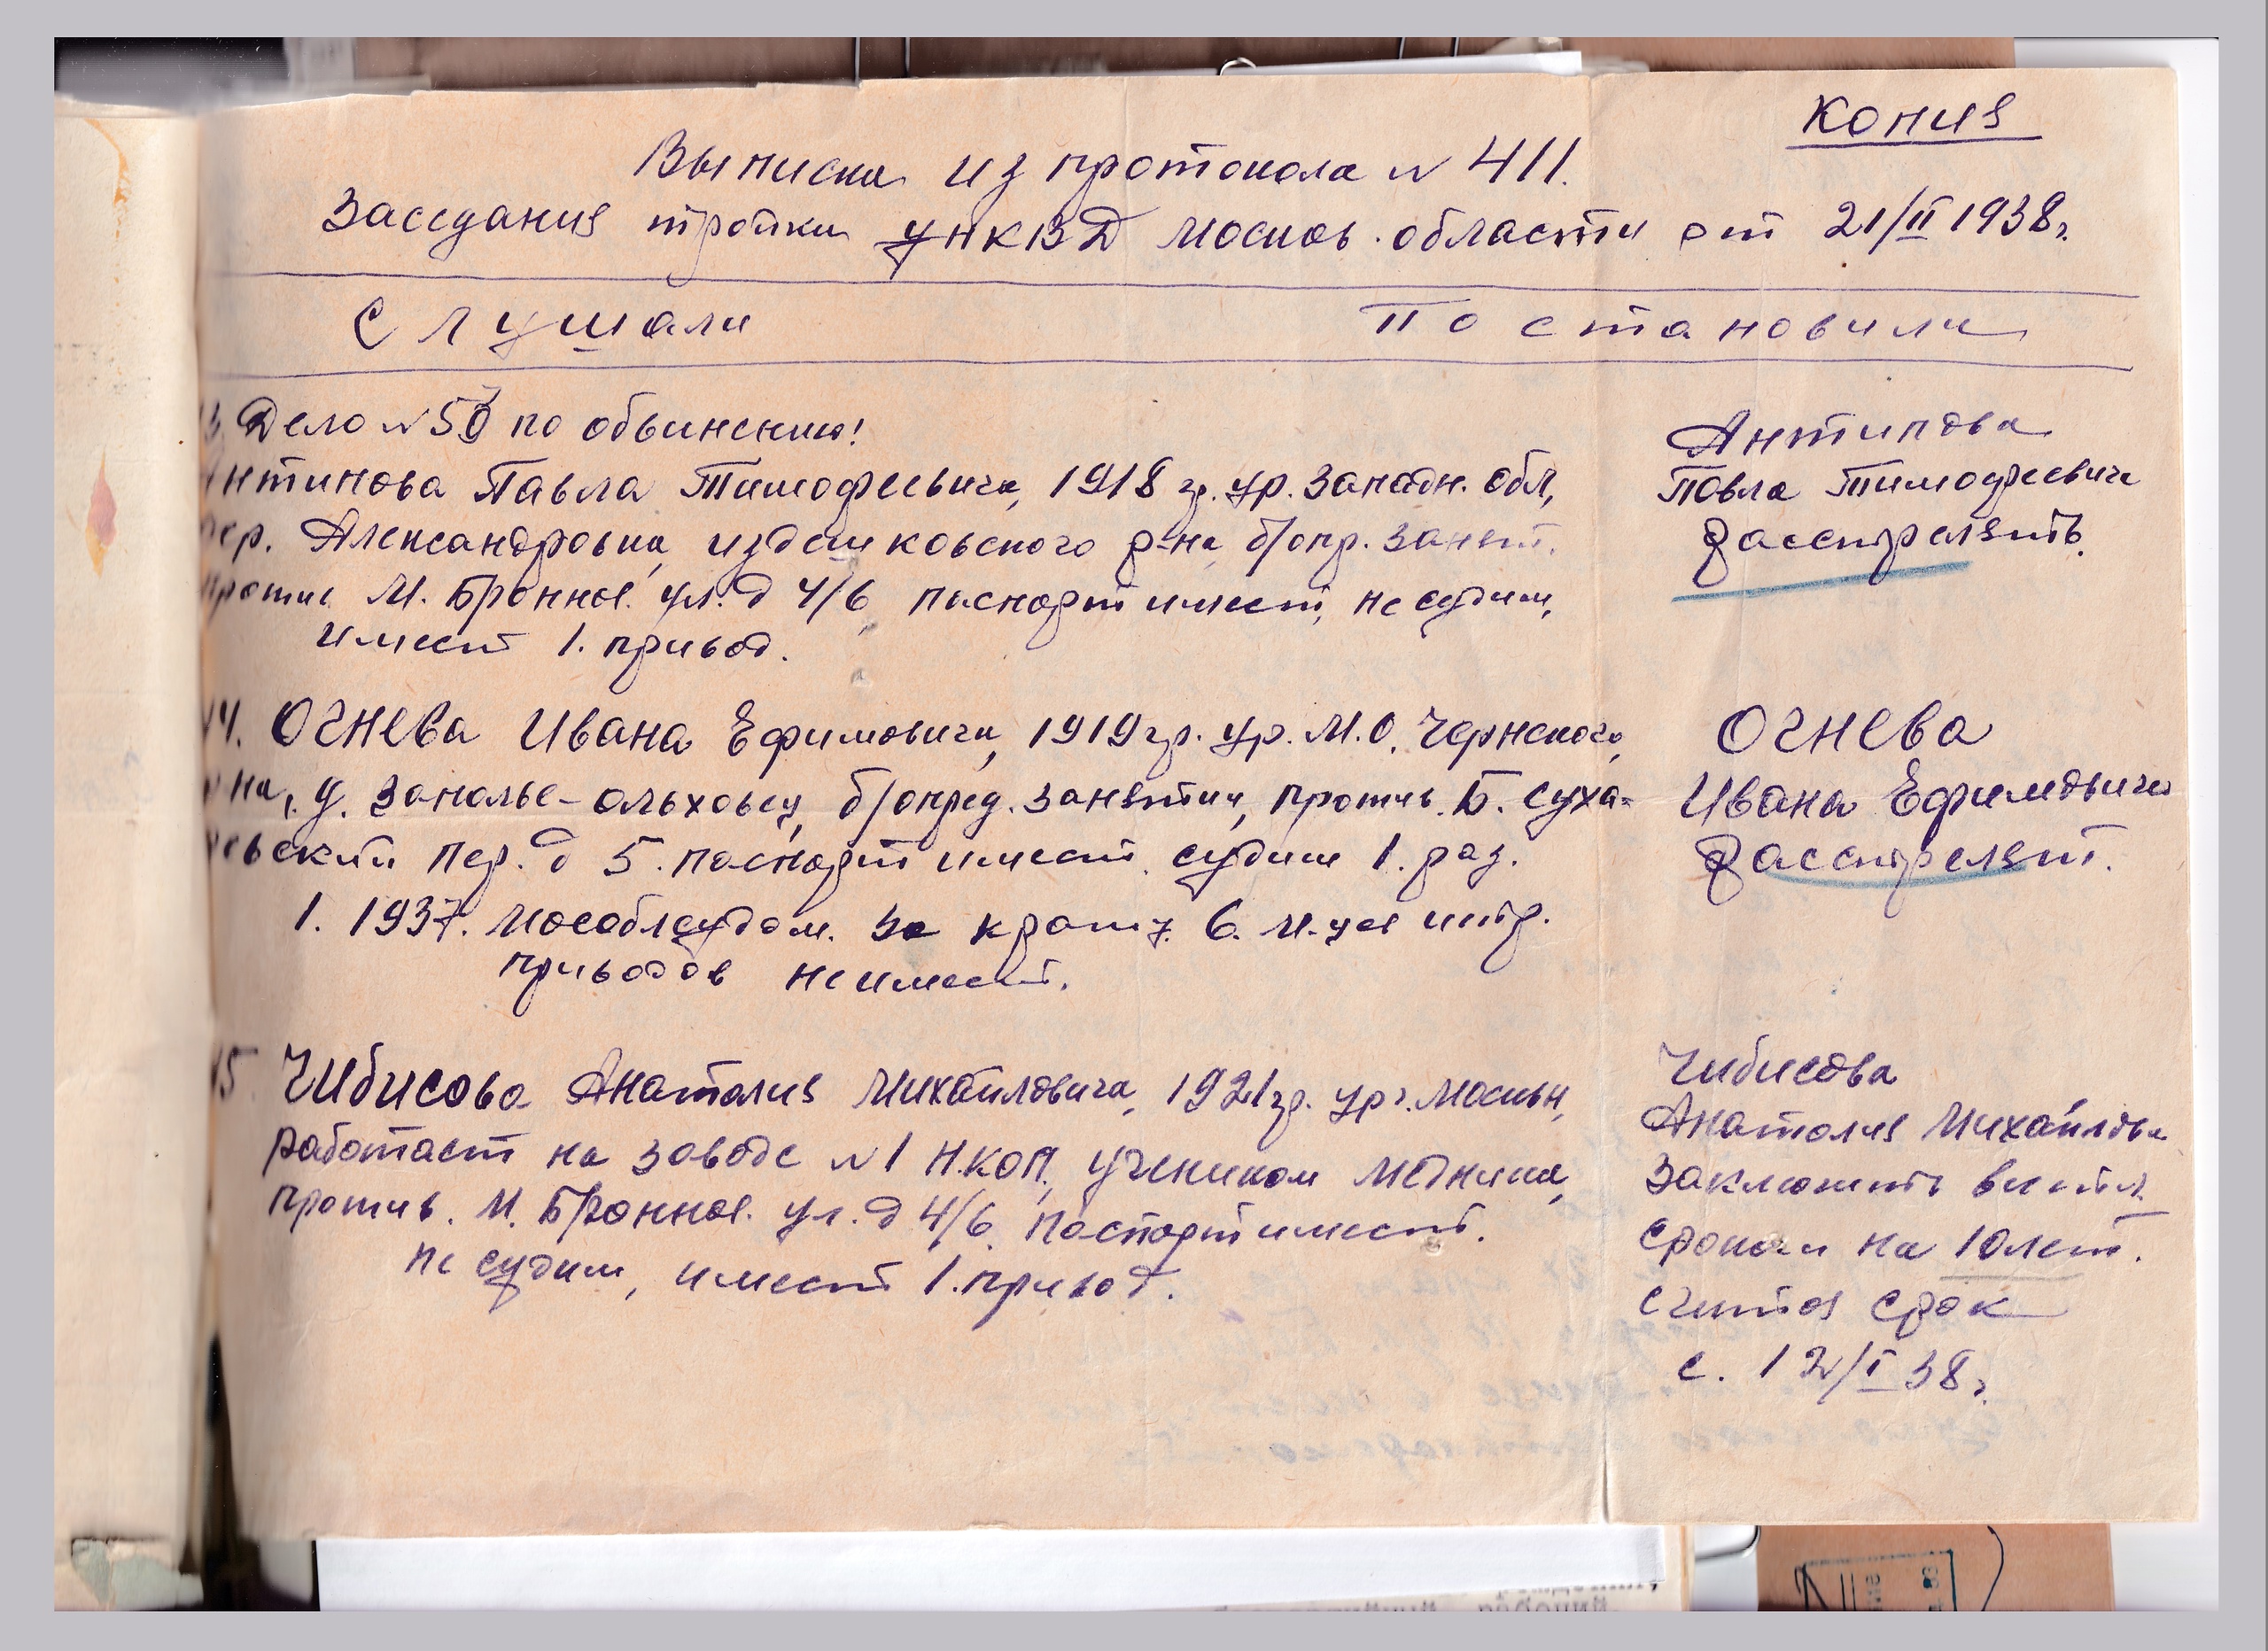 Копия
Выписка из протокола № 411.
Заседания тройки УНКВД москов. области от 21/II 1938г.
Слушали
Постановили
Дело № 50 по обвинению!
Антипова Павла Тимофеевича, 1918 гр. ур. Западн. обл,
дер. Александровка, издешковского р-на, б/опр. занят.
прожив. М. Бронная ул. д 4/6, паспорт имеет, не судим,
имеет 1. привод.
Антипова
Павла Тимофеевича
Расстрелять.
14. Огнева Ивана Ефимовича, 1919 гр. ур. М.О. Чернского
р-на, д. Заполье-ольховец, б/опред. занятий, прожив. Б. Суха-
ревский пер. д 5. паспорт имеет. судим 1. раз.
1. 1937. Мособлсудом. за 6. м-цев ипр.
приводов не имеет.
Огнева
Ивана Ефимовича
Расстрелят.
15. Чибисова Анатолия Михайловича, 1921 гр. ур г. Москвы,
работает на заводе № 1 Н.КОП, учеником медника,
прожив. М. Бронная. ул. д 4/6. Паспорт имеет.
не судим, имеет 1. привод.
Чибисова
Анатолия Михайлов.
Заключить в ИТЛ
сроком на 10 лет.
считая срок
с. 12/I 38г.